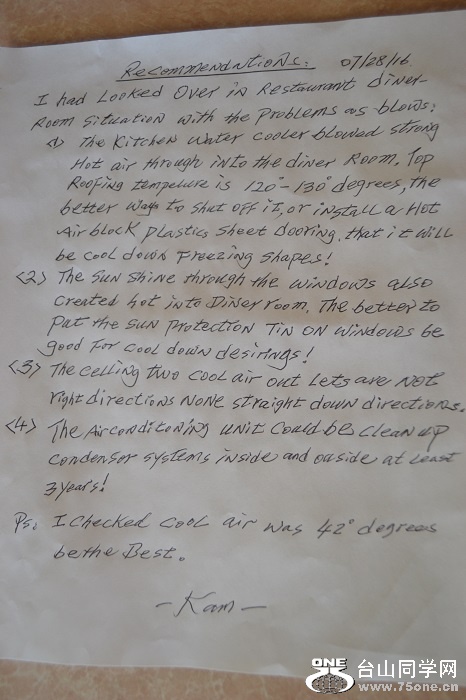 Recommendations: 07/28/16
I had Looked Over in Restaurant Diner
Room situation with the Problems as blows:
<1> The Kitchen Water cooler blowed strong
Hot air through into the diner Room. Top
Roofing tempelure is 120°-130° degrees, the
better ways to shut off it, or install a Hot
Air block plastics sheet dooring, that it will
be cool down Freezing shapes!
<2> The Sun Shine through the windows also
Created hot into Diner room. The better to
Pat the Sun Protection Tin on windows be
good for cool down desirings!
<3> The celling two cool air out Lets are Not
right directions None straight down directions.
<4> The Airconditoning unit Could be clean up
Condensor systems inside and ouside at Least
3 years!
Ps: I checked cool air was 42° degrees
be the Best.
- Kam -
ONE 台山同学网
www.75one.cn